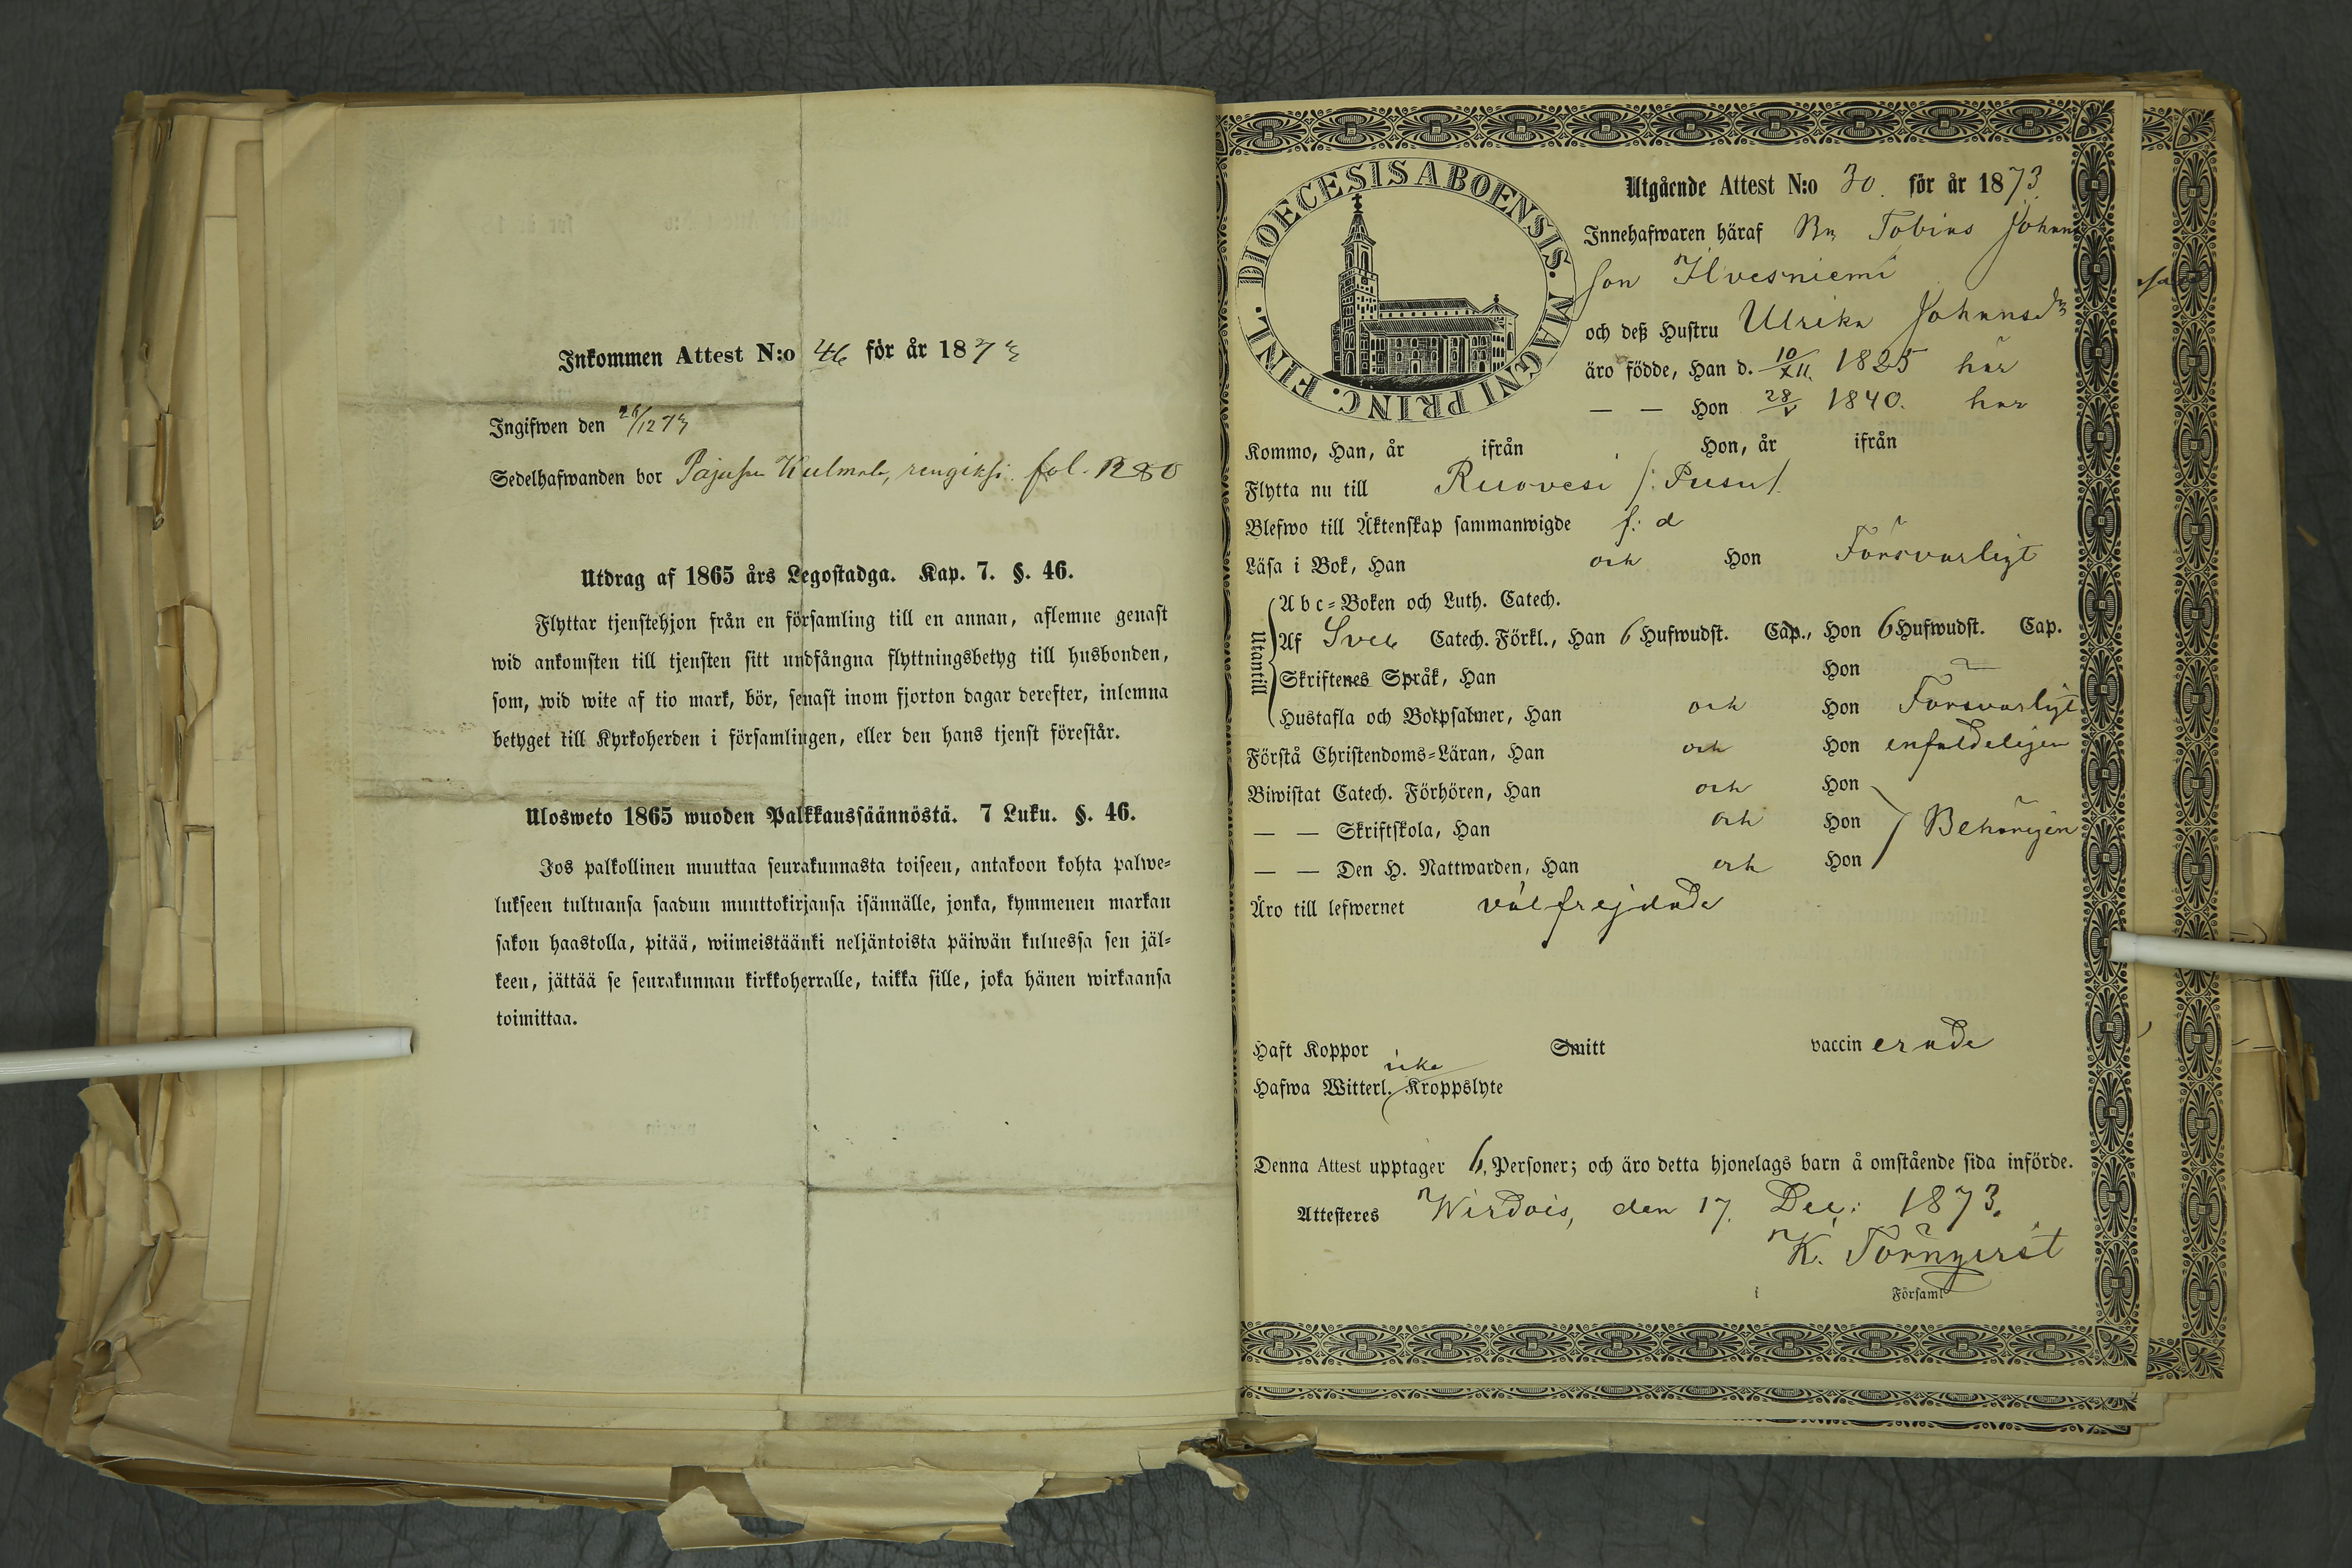 Inkommen Attest N:o 46 för år 1873
Ingifwen den 26/12 73
Sedelhafwanden bor Kulmala, rengiksi. fol.
Utdrag af 1865 års Legostadga. Kap. 7. §. 46.
Flyttar tjenstehjon från en församling till en annan, aflemne genast
wid ankomsten till tjensten sitt undfångna flyttningsbetyg till husbonden,
som, wid wite af tio mark, bör, senast inom fjorton dagar derefter, inlemna
betyget till Kyrkoherden i församlingen, eller den hans tjenst förestår.
Ulosweto 1865 wuoden Palkkaussäännöstä. 7 Luku. §. 46.
Jos palkollinen muuttaa seurakunnasta toiseen, antakoon kohta palwe-
lukseen tultuansa saadun muuttokirjansa isännälle, jonka, kymmenen markan
sakon haastolla, pitää, wiimeistäänki neljäntoista päiwän kuluessa sen jäl-
keen, jättää se seurakunnan kirkkoherralle, taikka sille, joka hänen wirkaansa
toimittaa.
DIOECESIS ABOENSIS. MAGNI PRINC. FINL.
Utgående Attest N:o 30. för år 1873
Innehafwaren häraf Bn Tobias Johans
son Ilvesniemi
och deß Hustru Ulrika Johansdr
äro födde, Han d. 10/XII. 1825 här
— — Hon 28/V 1840. här
Kommo, Han, år ifrån Hon, år ifrån
Flytta nu till Ruovesi /: Pusu/.
Blefwo till Äktenskap sammanwigde f: d
Läsa i Bok, Han och Hon Försvarligt
Utantill
Abc-Boken och Luth. Catech.
Af Sveb Catech. Förkl., Han 6 Hufwudst. Cap., Hon 6 Hufwudst. Cap.
Skriftenes Språk, Han Hon
Hustafla och Botpsalmer, Han och Hon Försvarligt
Förstå Christendoms-Läran, Han och Hon enfaldeligen
Biwistat Catech. Förhören, Han och Hon
— — Skriftskola, Han och Hon Behörigen
— — Den H. Nattwarden, Han och Hon
Äro till lefwernet välfrejdade
Haft Koppor Smitt vaccinerade
icke
Hafwa Witterl. Kroppslyte
Denna Attest upptager 6 Personer; och äro detta hjonelags barn å omstående sida införde.
Attesteres Wirdois, den 17. Dec: 1873.
K. Törnqvist
i Församl